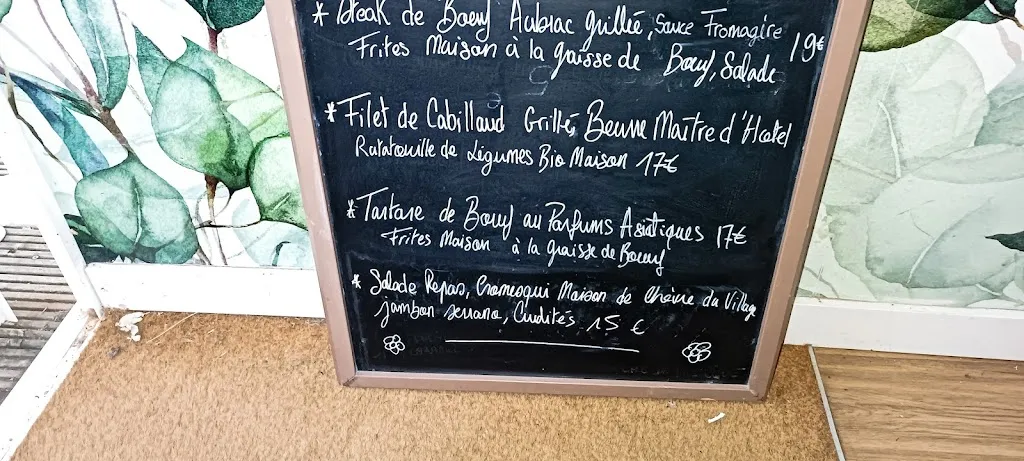 * Steak de Boeuf Aubrac grillé, Sauce Fromagère
Frites Maison à la graisse de Boeuf, Salade 19€
* Filet de Cabillaud Grillé, Beurre Maître d'Hotel
Ratatouille de Légumes Bio Maison 17€
* Tartare de Boeuf au Parfums Asiatiques 17€
Frites Maison à la graisse de Boeuf
* Salade Repas, Cromesqui Maison de Chèvre du Village
jambon serrano, Crudités 15 €